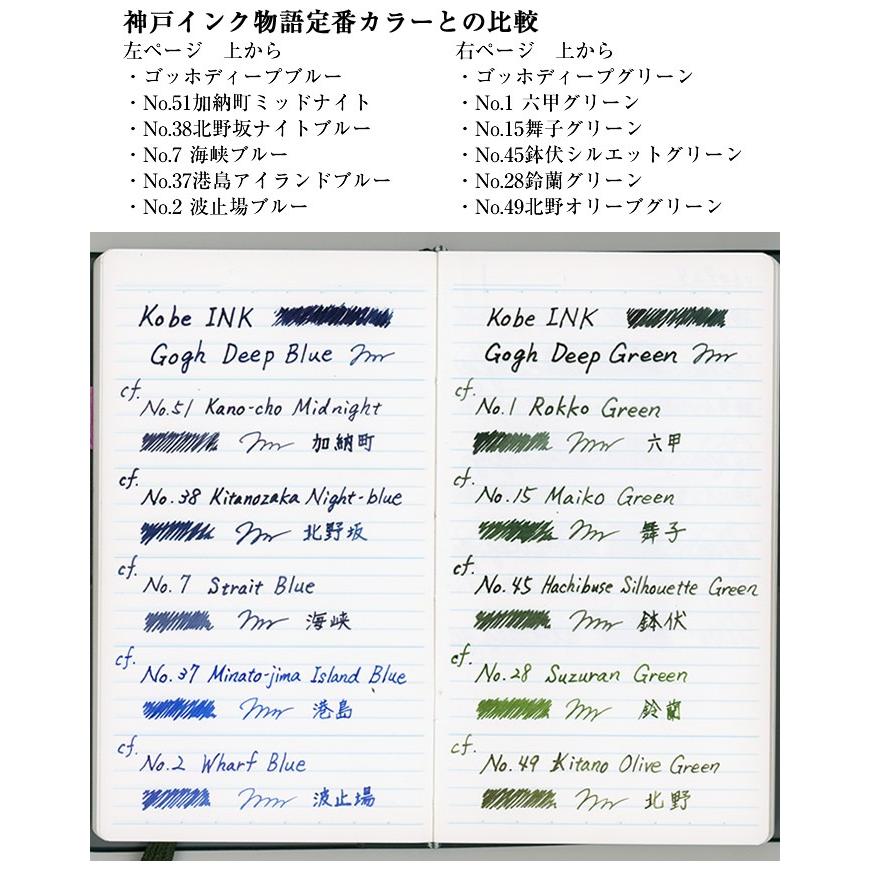 神戸インク物語定番カラーとの比較
左ページ　上から
・ゴッホディープブルー
・No.51加納町ミッドナイト
・No.38北野坂ナイトブルー
・No.7 海峡ブルー
・No.37港島アイランドブルー
・No.2 波止場ブルー
右ページ　上から
・ゴッホディープグリーン
・No.1 六甲グリーン
・No.15舞子グリーン
・No.45鉢伏シルエットグリーン
・No.28鈴蘭グリーン
・No.49北野オリーブグリーン
Kobe INK
Gogh Deep Blue
cf.
No.51 Kano-cho Midnight
加納町
cf.
No.38 Kitanozaka Night-blue
北野坂
cf.
No.7 Strait Blue
海峡
cf.
No.37 Minato-jima Island Blue
港島
cf.
No.2 Wharf Blue
波止場
Kobe INK
Gogh Deep Green
cf.
No.1 Rokko Green
六甲
cf.
No.15 Maiko Green
舞子
cf.
No.45 Hachibuse Silhouette Green
鉢伏
cf.
No.28 Suzuran Green
鈴蘭
cf.
No.49 Kitano Olive Green
北野